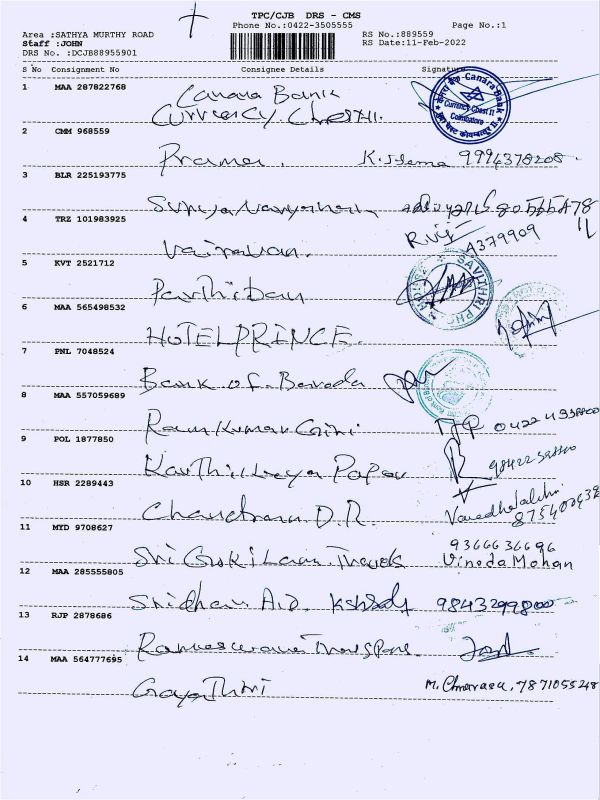 TPC/CJB DRS - CMS
Phone No.:0422-3505555 Page No.:1
Area :SATHYA MURTHY ROAD RS No.:889559
Staff :JOHN RS Date:11-Feb-2022
DRS No. :DCJB88955901
S No Consignment No Consignee Details Signature
1 MAA 287822768
Canara Bank
Currency Chest II.
Canara Bank
Currency Chest II
Coimbatore
2 CMM 968559
Prama. K. Hema 9994378208
3 BLR 225193775
4 TRZ 101983925
Vairavan. A379909
5 KVT 2521712
Parthiban
SAVITHRI PHO
6 MAA 565498532
HOTEL PRINCE
7 PNL 7048524
Bank of Baroda
8 MAA 557059689
Ram Kumar 0422
9 POL 1877850
Karthikeya Paper
10 HSR 2289443
Chandran D.R.
11 MYD 9708627
9366636696
Sri Travels Vinoda Mohan
12 MAA 285555805
Sridhar 9843299800
13 RJP 2878686
Rameswaram Transport
14 MAA 564777695
Gayathri 7871055248